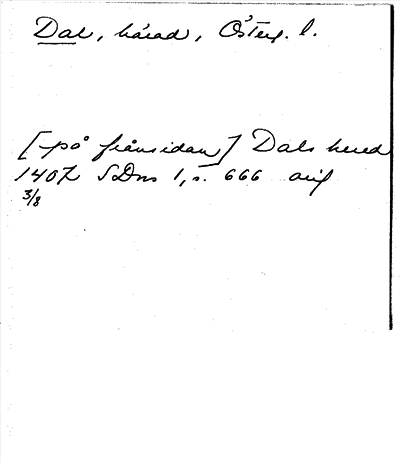 Dal, härad, Österg. l.
[på frånsidan] Dals hered
1407 SDns 1, s. 666 avif
3/8